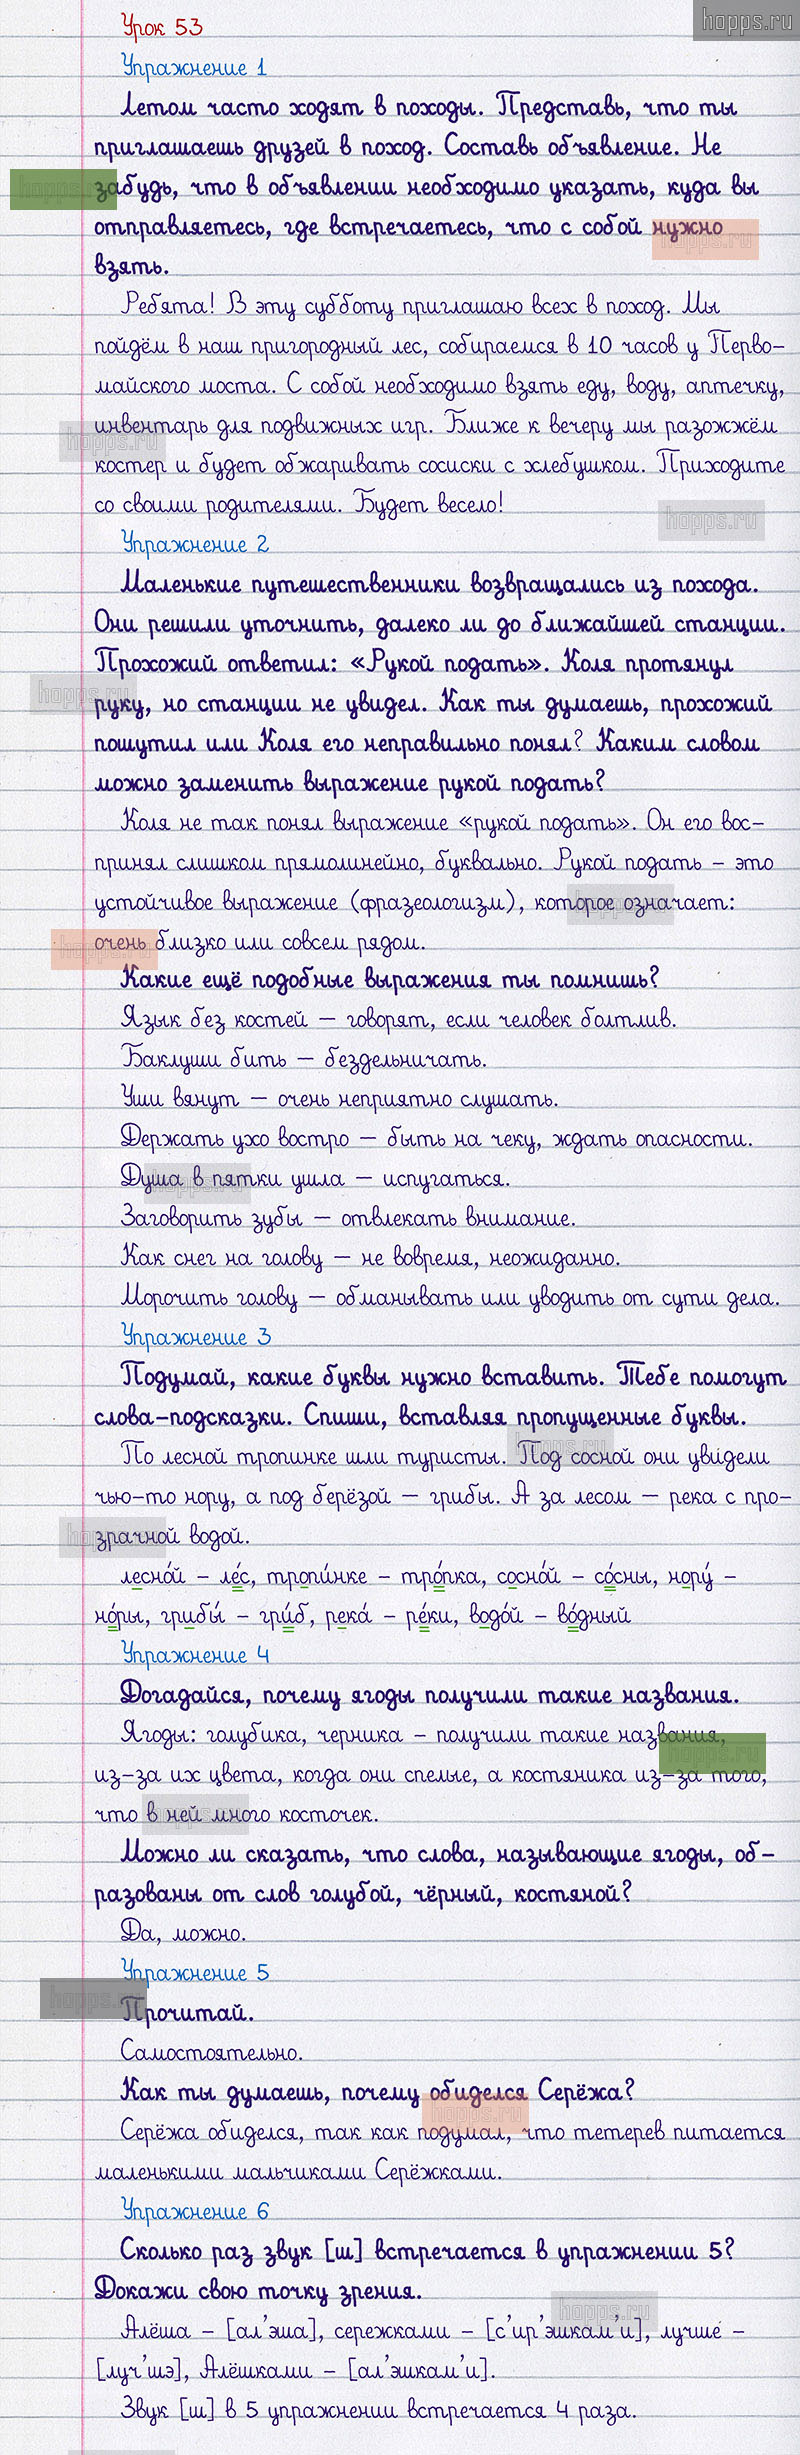 hopps.ru
Урок 53
Упражнение 1
Летом часто ходят в походы. Представь, что ты
приглашаешь друзей в поход. Составь объявление. Не
забудь, что в объявлении необходимо указать, куда вы
отправляетесь, где встречаетесь, что с собой нужно
взять.
Ребята! В эту субботу приглашаю всех в поход. Мы
пойдём в наш пригородный лес, собираемся в 10 часов у Перво-
майского моста. С собой необходимо взять еду, воду, аптечку,
инвентарь для подвижных игр. Ближе к вечеру мы разожжём
костер и будет обжаривать сосиски с хлебушком. Приходите
со своими родителями. Будет весело!
Упражнение 2
Маленькие путешественники возвращались из похода.
Они решили уточнить, далеко ли до ближайшей станции.
Прохожий ответил: «Рукой подать». Коля протянул
руку, но станции не увидел. Как ты думаешь, прохожий
пошутил или Коля его неправильно понял? Каким словом
можно заменить выражение рукой подать?
Коля не так понял выражение «рукой подать». Он его вос-
принял слишком прямолинейно, буквально. Рукой подать – это
устойчивое выражение (фразеологизм), которое означает:
очень близко или совсем рядом.
Какие ещё подобные выражения ты помнишь?
Язык без костей — говорят, если человек болтлив.
Баклуши бить — бездельничать.
Уши вянут — очень неприятно слушать.
Держать ухо востро — быть на чеку, ждать опасности.
Душа в пятки ушла — испугаться.
Заговорить зубы — отвлекать внимание.
Как снег на голову — не вовремя, неожиданно.
Морочить голову — обманывать или уводить от сути дела.
Упражнение 3
Подумай, какие буквы нужно вставить. Тебе помогут
слова-подсказки. Спиши, вставляя пропущенные буквы.
По лесной тропинке шли туристы. Под сосной они увидели
чью-то нору, а под берёзой — грибы. А за лесом — река с про-
зрачной водой.
лесно́й – ле́с, тропи́нке – тро́пка, сосно́й – со́сны, нору́ –
но́ры, грибы́ – гри́б, река́ – ре́ки, водо́й – во́дный
Упражнение 4
Догадайся, почему ягоды получили такие названия.
Ягоды: голубика, черника – получили такие названия,
из-за их цвета, когда они спелые, а костяника из-за того,
что в ней много косточек.
Можно ли сказать, что слова, называющие ягоды, об-
разованы от слов голубой, чёрный, костяной?
Да, можно.
Упражнение 5
Прочитай.
Самостоятельно.
Как ты думаешь, почему обиделся Серёжа?
Серёжа обиделся, так как подумал, что тетерев питается
маленькими мальчиками Серёжками.
Упражнение 6
Сколько раз звук [ш] встречается в упражнении 5?
Докажи свою точку зрения.
Алёша – [ал'эша], сережками – [с'ир'эшкам'и], лучше –
[луч'шэ], Алёшками – [ал'эшкам'и].
Звук [ш] в 5 упражнении встречается 4 раза.